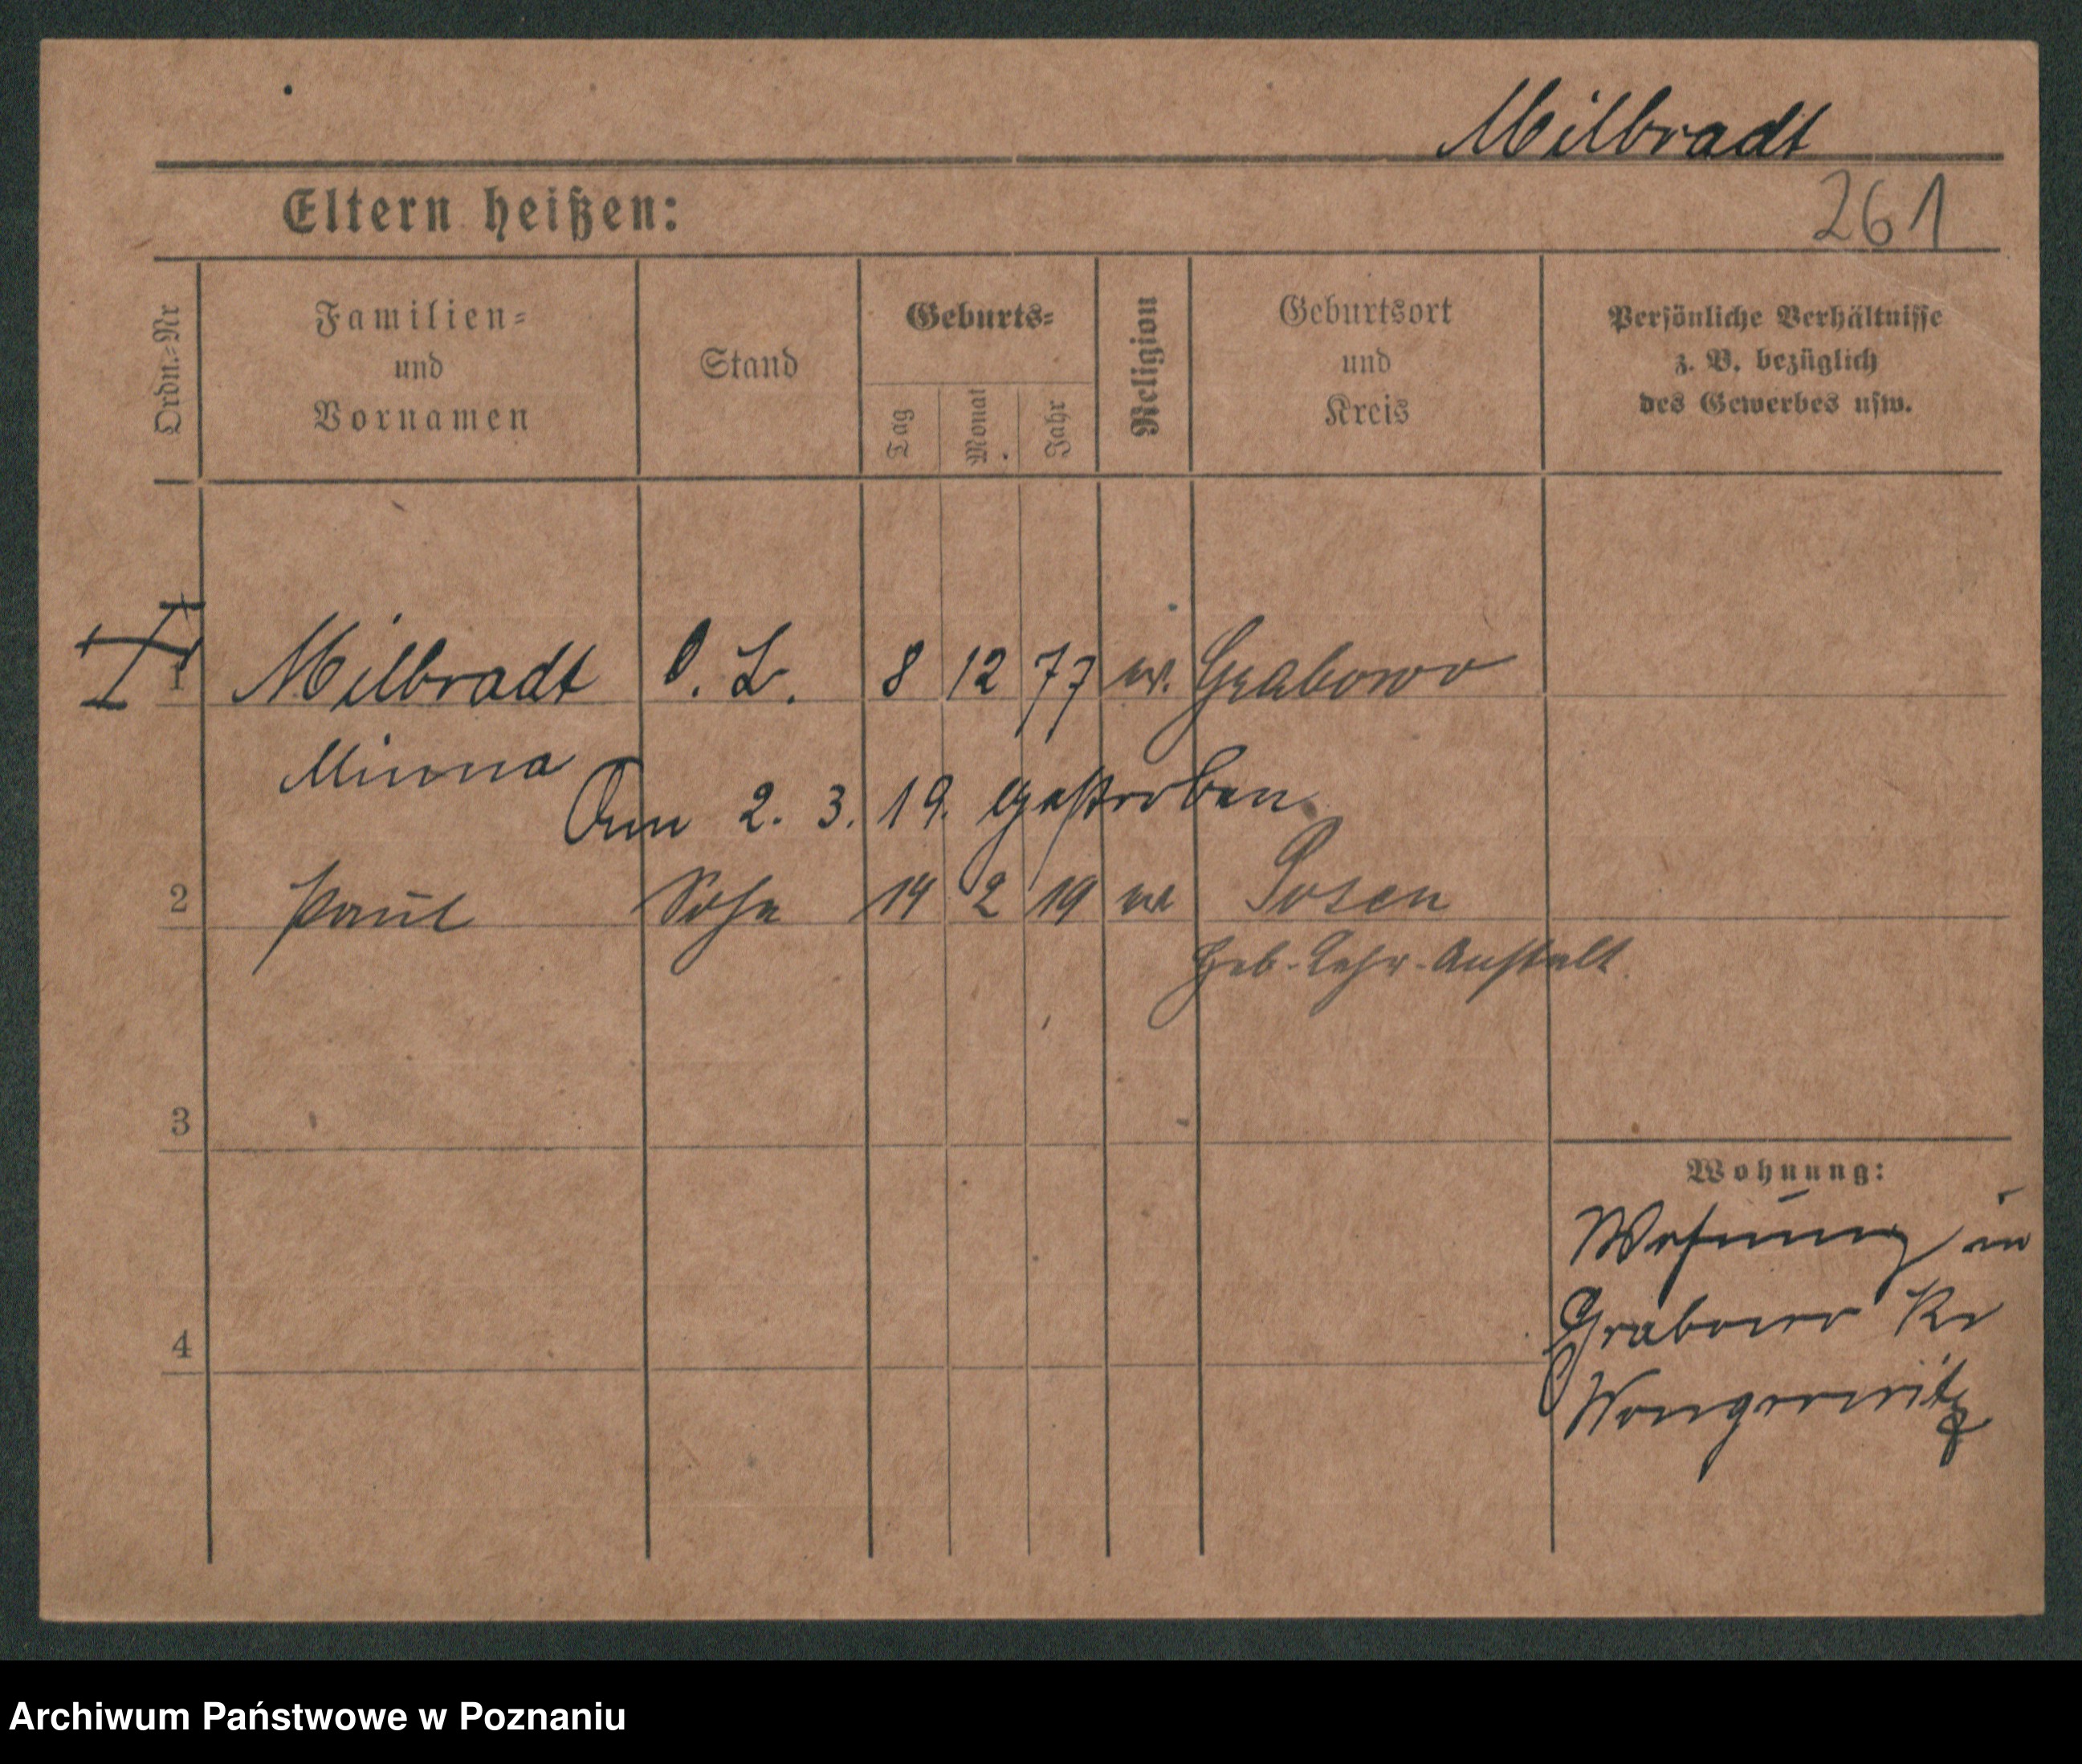 Milbradt
Eltern heißen:
261
Ordn.=Nr
Familien=
und
Vornamen
Stand
Geburts=
Tag
Monat
Jahr
Religion
Geburtsort
und
Kreis
Persönliche Verhältnisse
z. B. bezüglich
des Gewerbes usw.
1 Milbradt O. L. 8 12 77 ev. Grabowo
Minna
Am 2. 3. 19. gestorben
2 Paul Sohn 14 2 19 ev Posen
Heb-Lehr-Anstalt.
3
Wohnung:
Wohnung in
Grabowo Kr
4
Wongrowitz
Archiwum Państwowe w Poznaniu